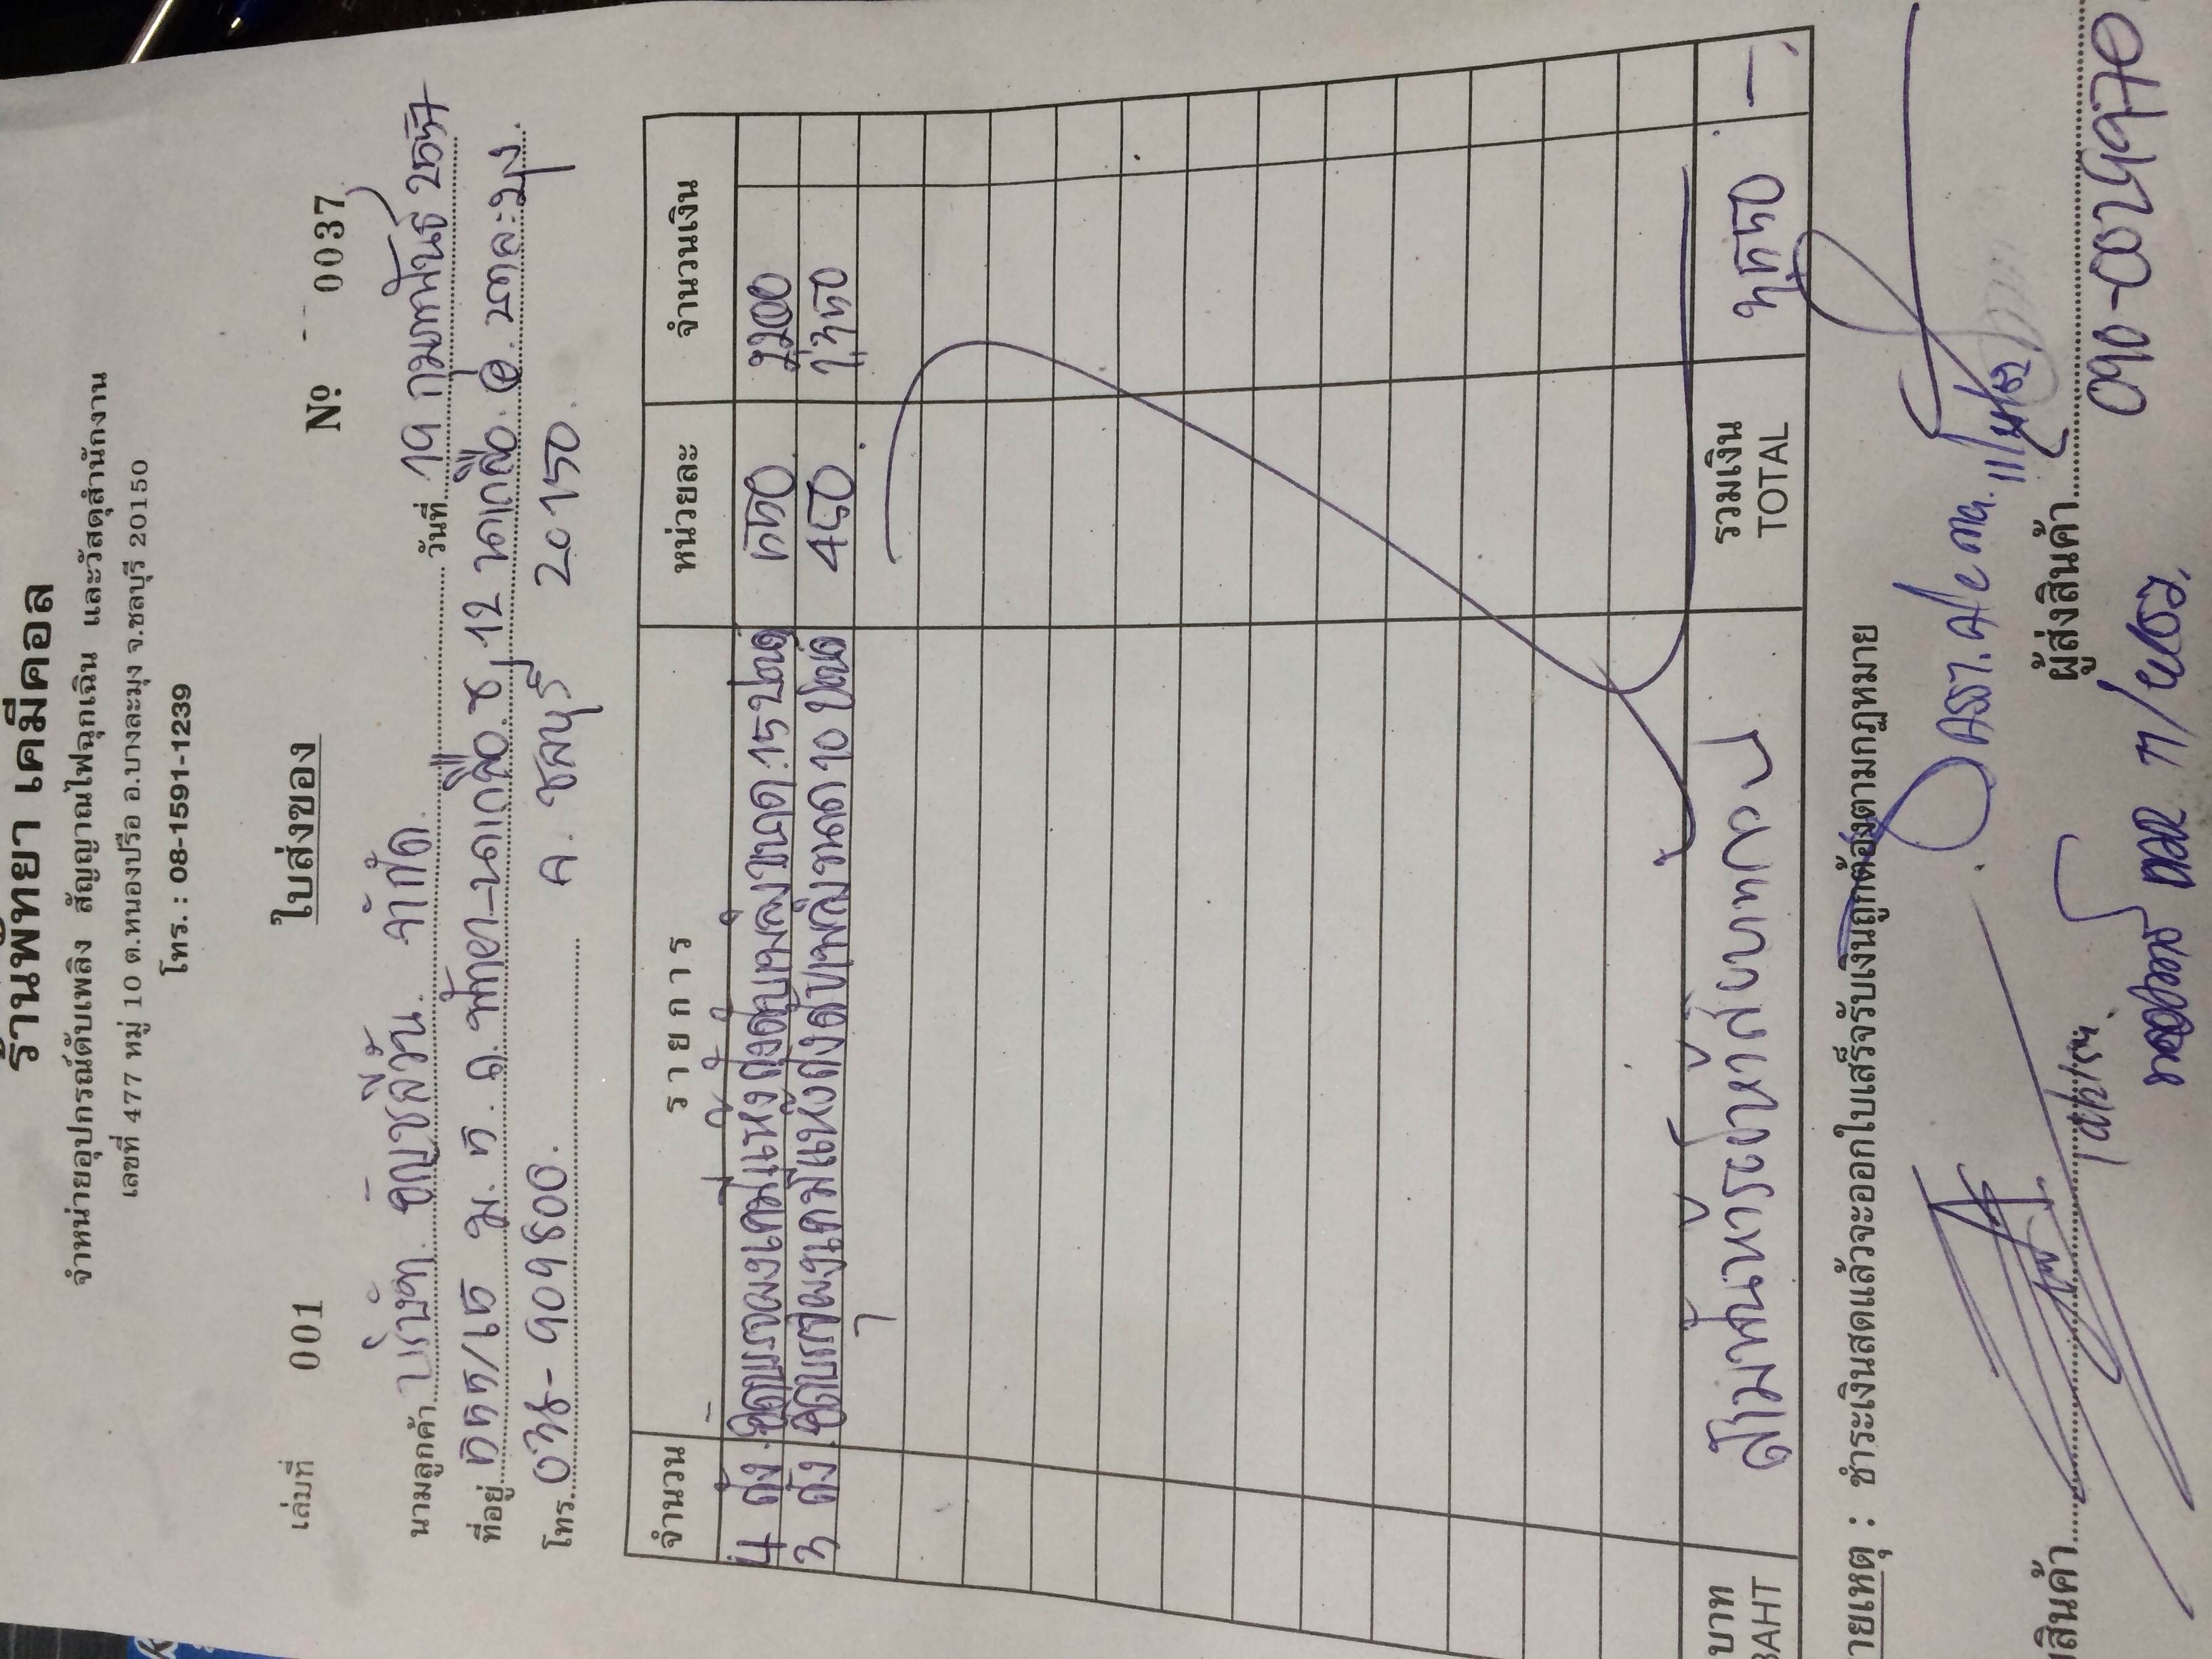 ร้านพัทยา เคมีคอล
จำหน่ายอุปกรณ์ดับเพลิง สัญญาณไฟฉุกเฉิน และวัสดุสำนักงาน
เลขที่ 477 หมู่ 10 ต.หนองปรือ อ.บางละมุง จ.ชลบุรี 20150
โทร. : 08-1591-1239
เล่มที่ 001 ใบส่งของ Nº 0037
นามลูกค้า บริษัท อัญชลีวัน จำกัด วันที่ 19 กุมภาพันธ์ 2557
ที่อยู่ 555/65 ม. 5. ถ. พัทยา-นาเกลือ. ซ. 12 นาเกลือ. อ. บางละมุง.
โทร. 038-909800. จ. ชลบุรี 20150.
จำนวน รายการ หน่วยละ จำนวนเงิน
4 ถัง อัดบรรจุผงเคมีแห้งถังดับเพลิงขนาด 15 ปอนด์ 550 2,200
3 ถัง อัดบรรจุผงเคมีแห้งถังดับเพลิงขนาด 10 ปอนด์ 450 1,350
7
บาท สามพันห้าร้อยห้าสิบบาทถ้วน รวมเงิน 3,550 -
BAHT TOTAL
ายเหตุ : ชำระเงินสดแล้วจะออกใบเสร็จรับเงินถูกต้องตามกฏหมาย
สินค้า ผู้ส่งสินค้า
090-0029970